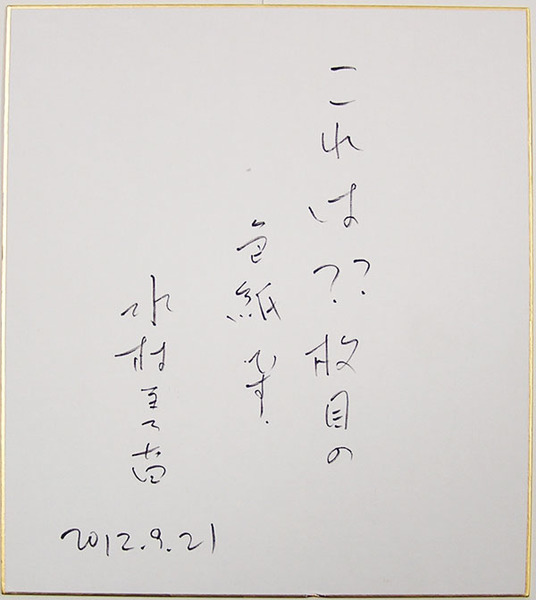 これは??枚目の
色紙です.
水村美苗
2012.9.21